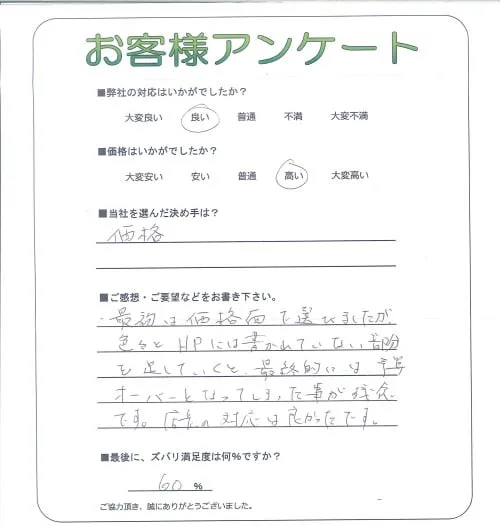 お客様アンケート
■弊社の対応はいかがでしたか？
大変良い 良い 普通 不満 大変不満
■価格はいかがでしたか？
大変安い 安い 普通 高い 大変高い
■当社を選んだ決め手は？
価格
■ご感想・ご要望などをお書き下さい。
・最初は価格面で選びましたが、
色々とHPには書かれていない部分
を足していくと、最終的には予算
オーバーとなってしまった事が残念
です。店長の対応は良かったです。
■最後に、ズバリ満足度は何％ですか？
60 ％
ご協力頂き、誠にありがとうございました。